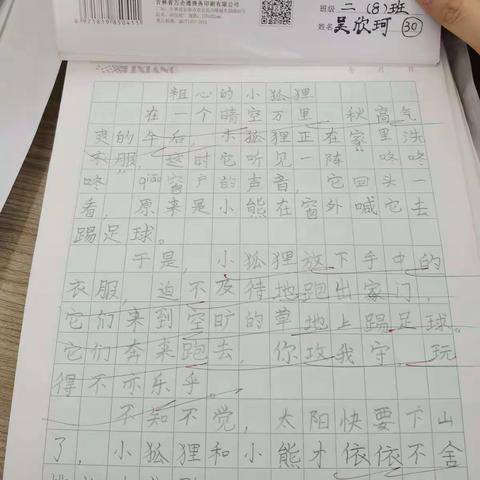 吉林省万仓道商务印刷有限公司
6971819850411
班级 二(8)班
姓名 吴欣珂 30
LIXIANG
粗心的小狐狸
在一个晴空万里、秋高气
爽的午后,小狐狸正在家里洗
衣服,这时它听见一阵"咚咚
咚"qiāo窗户的声音,它回头一
看,原来是小熊在窗外喊它去
踢足球。
于是,小狐狸放下手中的
衣服,迫不及待地跑出家门,
它们来到空旷的草地上踢足球。
它们奔来跑去,你攻我守,玩
得不亦乐乎。
不知不觉,太阳快要下山
了,小狐狸和小熊才依依不舍